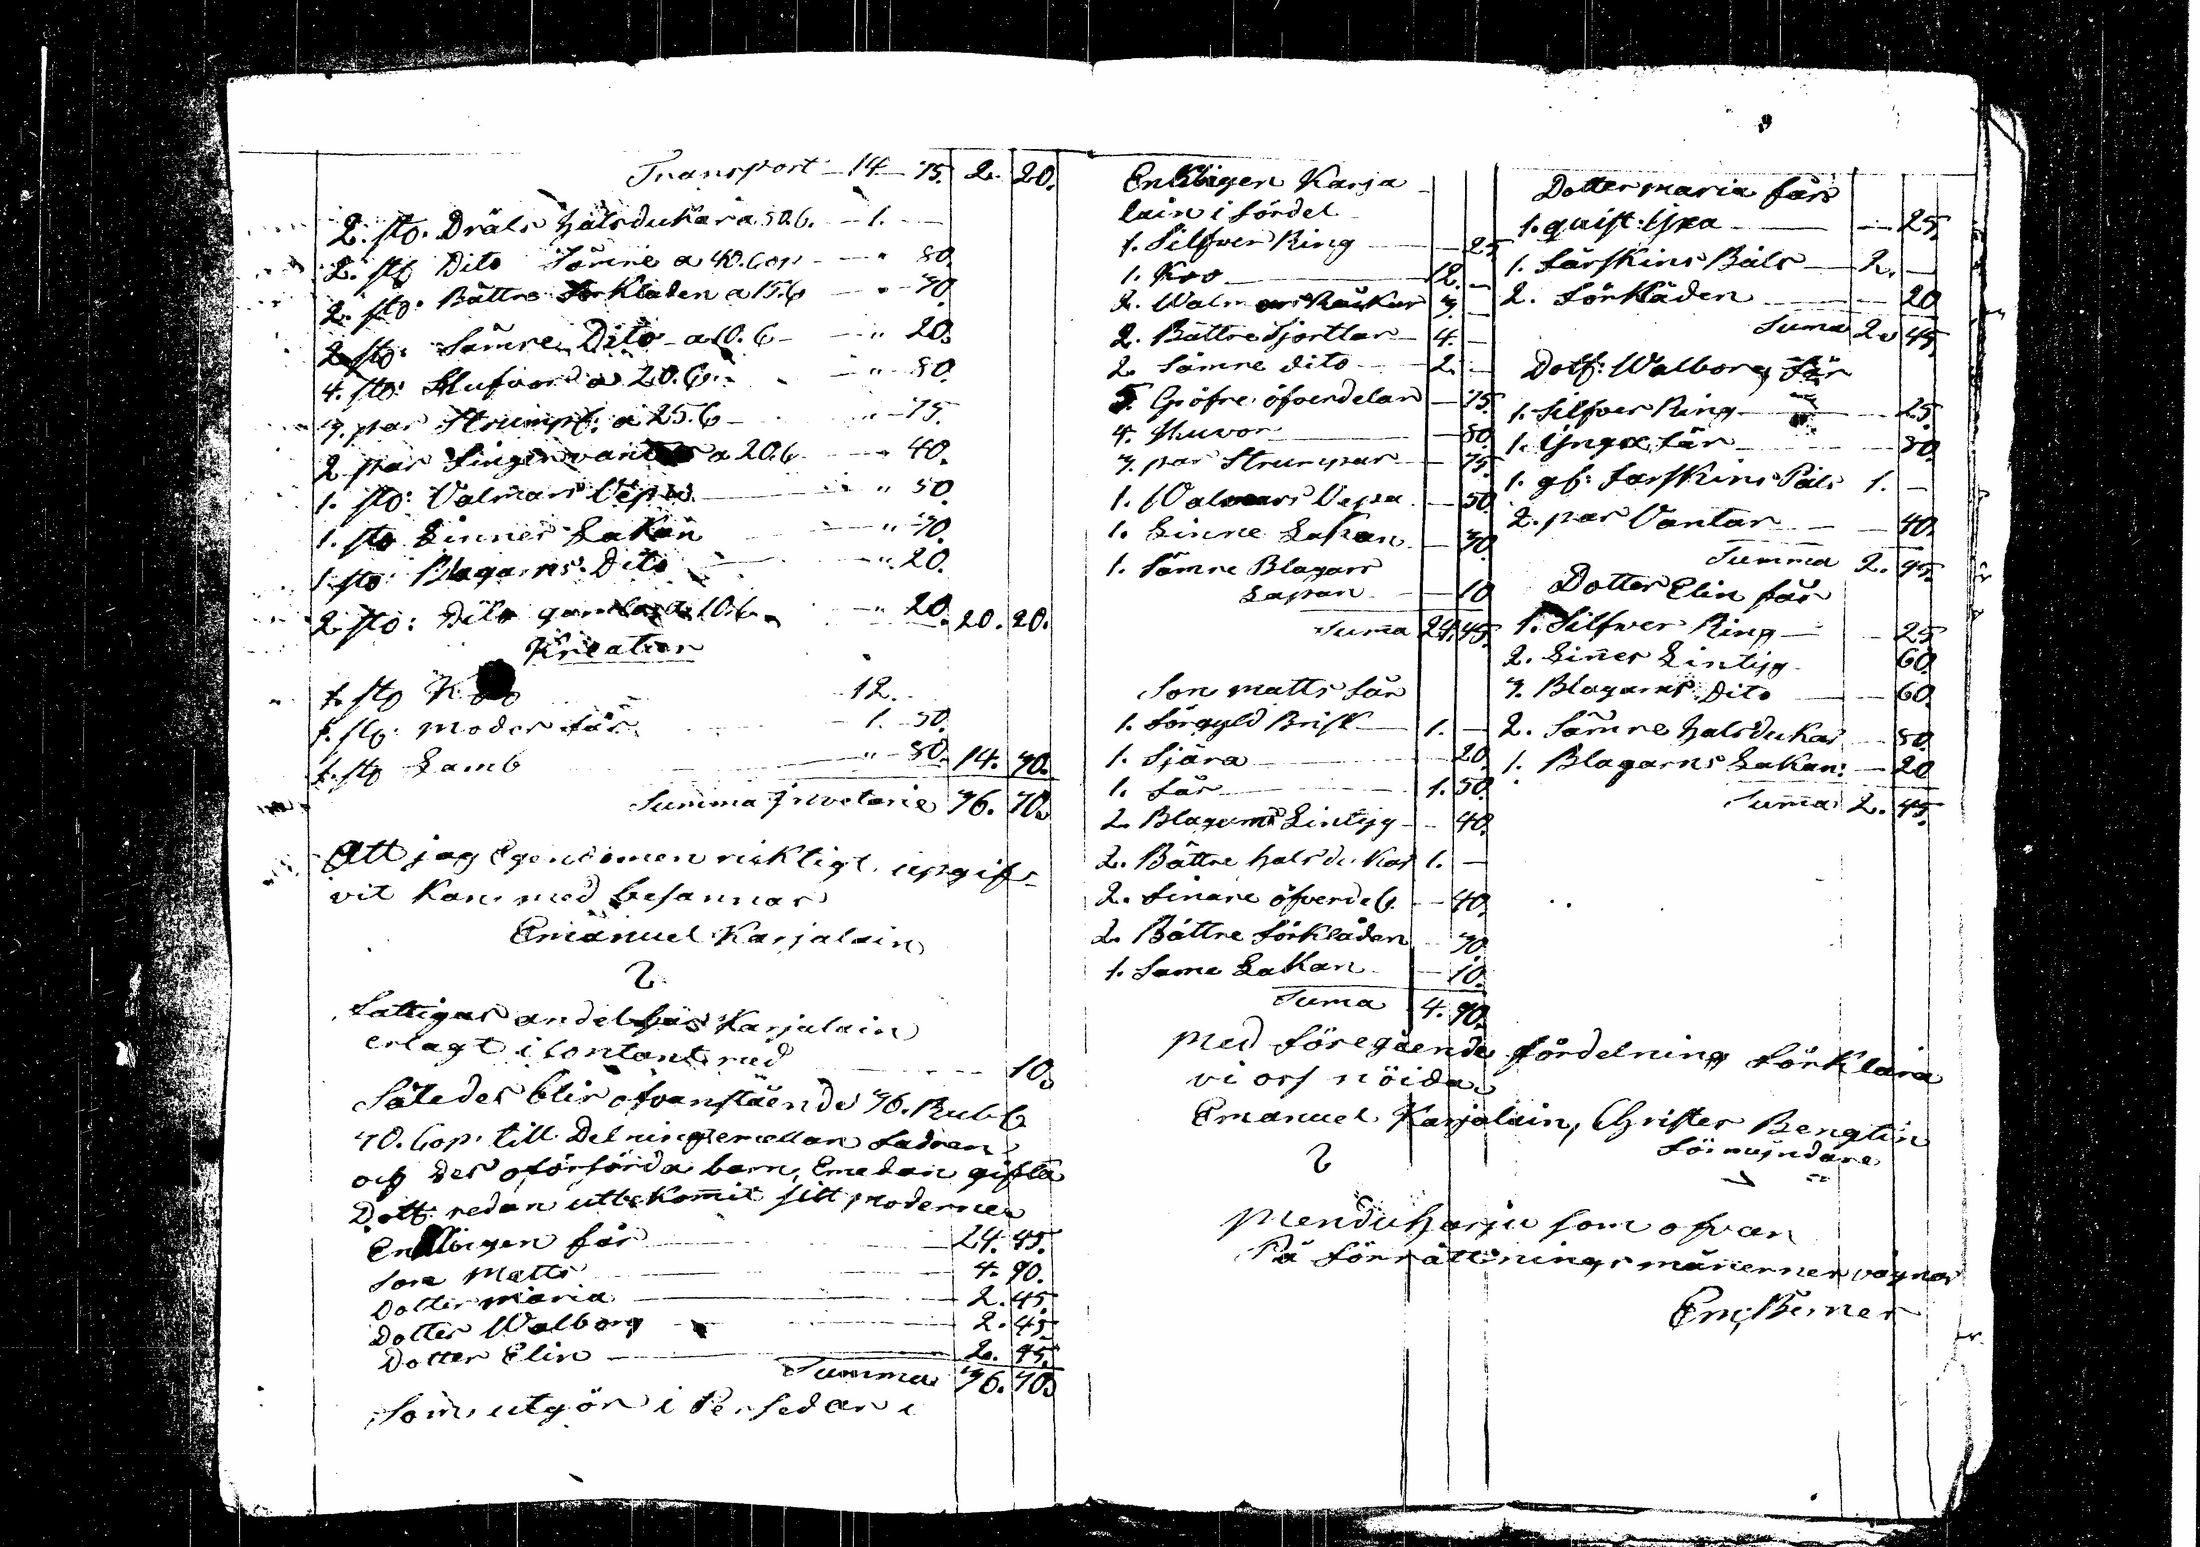 Transport 14 75. 2. 20.
2. st. Dräls Halsdukar a 50.c. 1. —
2. st. Dito Sämre a 40. Cop " 80
2. st: Bättre Förkläden a 15.c " 30
2 st: Sämre Dito a 10. c " 20.
4. st: Hufvor a 20.c. " 80.
3. par Strumpf: a 25.c " 75.
2 par Fingervantar a 20.c " 40.
1. st: Valmars Vepa " 50.
1. st Linnes Lakan " 30.
1. st: Blagarns Dito " 20.
2. st: Dito gamla a 10.c. " 20. 20. 20.
Kreatur
1. st Ko 12.
1. st: moder får 1. 50.
1. st Lamb " 80. 14. 30.
Summa Inventarie 36. 70.
Att jag Egendomen riktigt upgif-
vit Kan med besannas
Emanuel Karjalain
Fattigas andel har Karjalain
erlagt i contant med 10.
Således blir ofvanstående 36. Rub
70. Cop. till Delning emellan Fadren
och des oförsörda barn, Emedan gifta
Dott: redan utbekomit sitt moderne
Enklingen får 24. 45.
Son Matts 4. 90.
Dotter Maria 2. 45.
Dotter Walborg 2. 45
Dotter Elin 2. 45.
Summa 36. 70.
Som utgör i Persedlar
Enklingen Karja
lain i fördel
1. Silfver Ring — 25
1. Ko 12. —
2. Walmars 3. —
2. Bättre Sjortlar 4. —
2 Sämre dito 2. —
5. Gröfre öfverdelar — 75.
4. Huvor — 80
3. par Strumpar — 75.
1. Walmars Vepa — 50
1. Linne Lakan — 30
1. Sämre Blagars
Lapan — 10
Suma 24. 45.
Son matts får
1. Förgyld Brisk 1. —
1. Sjära 20
1. Får 1. 50.
2. Blagarns Lintyg — 40.
2. Bättre halsdukar 1. —
2. Finare öfverdel. — 40.
2. Bättre förkläden 30
1. Same Lakan — 10.
Suma 4. 90.
Dotter maria får
1. qvist — 25.
1. Fårskins Päls 2. —
2. Förkläden — 20
Suma 2. 45.
Dott: Walborg får
1. Silfver Ring — 25.
1. Yngre får — 80.
1. gl: Farskins Päls 1. —
2. par Vantar — 40.
Summa 2. 45.
Dotter Elin får
1. Silfver Ring — 25
2. Linnes Lintyg 60
3. Blagarns Dito — 60
2. Sämre halsdukar — 80.
1. Blagarns Lakan: — 20
Suma 2. 45.
Med föregående fördelning förklara
vi oss nöida
Emanuel Karjalain, Christer Bengtin
Förmyndare
Menduharju som ofvan
På förrättningsmännernes vägnar
Em; Berner